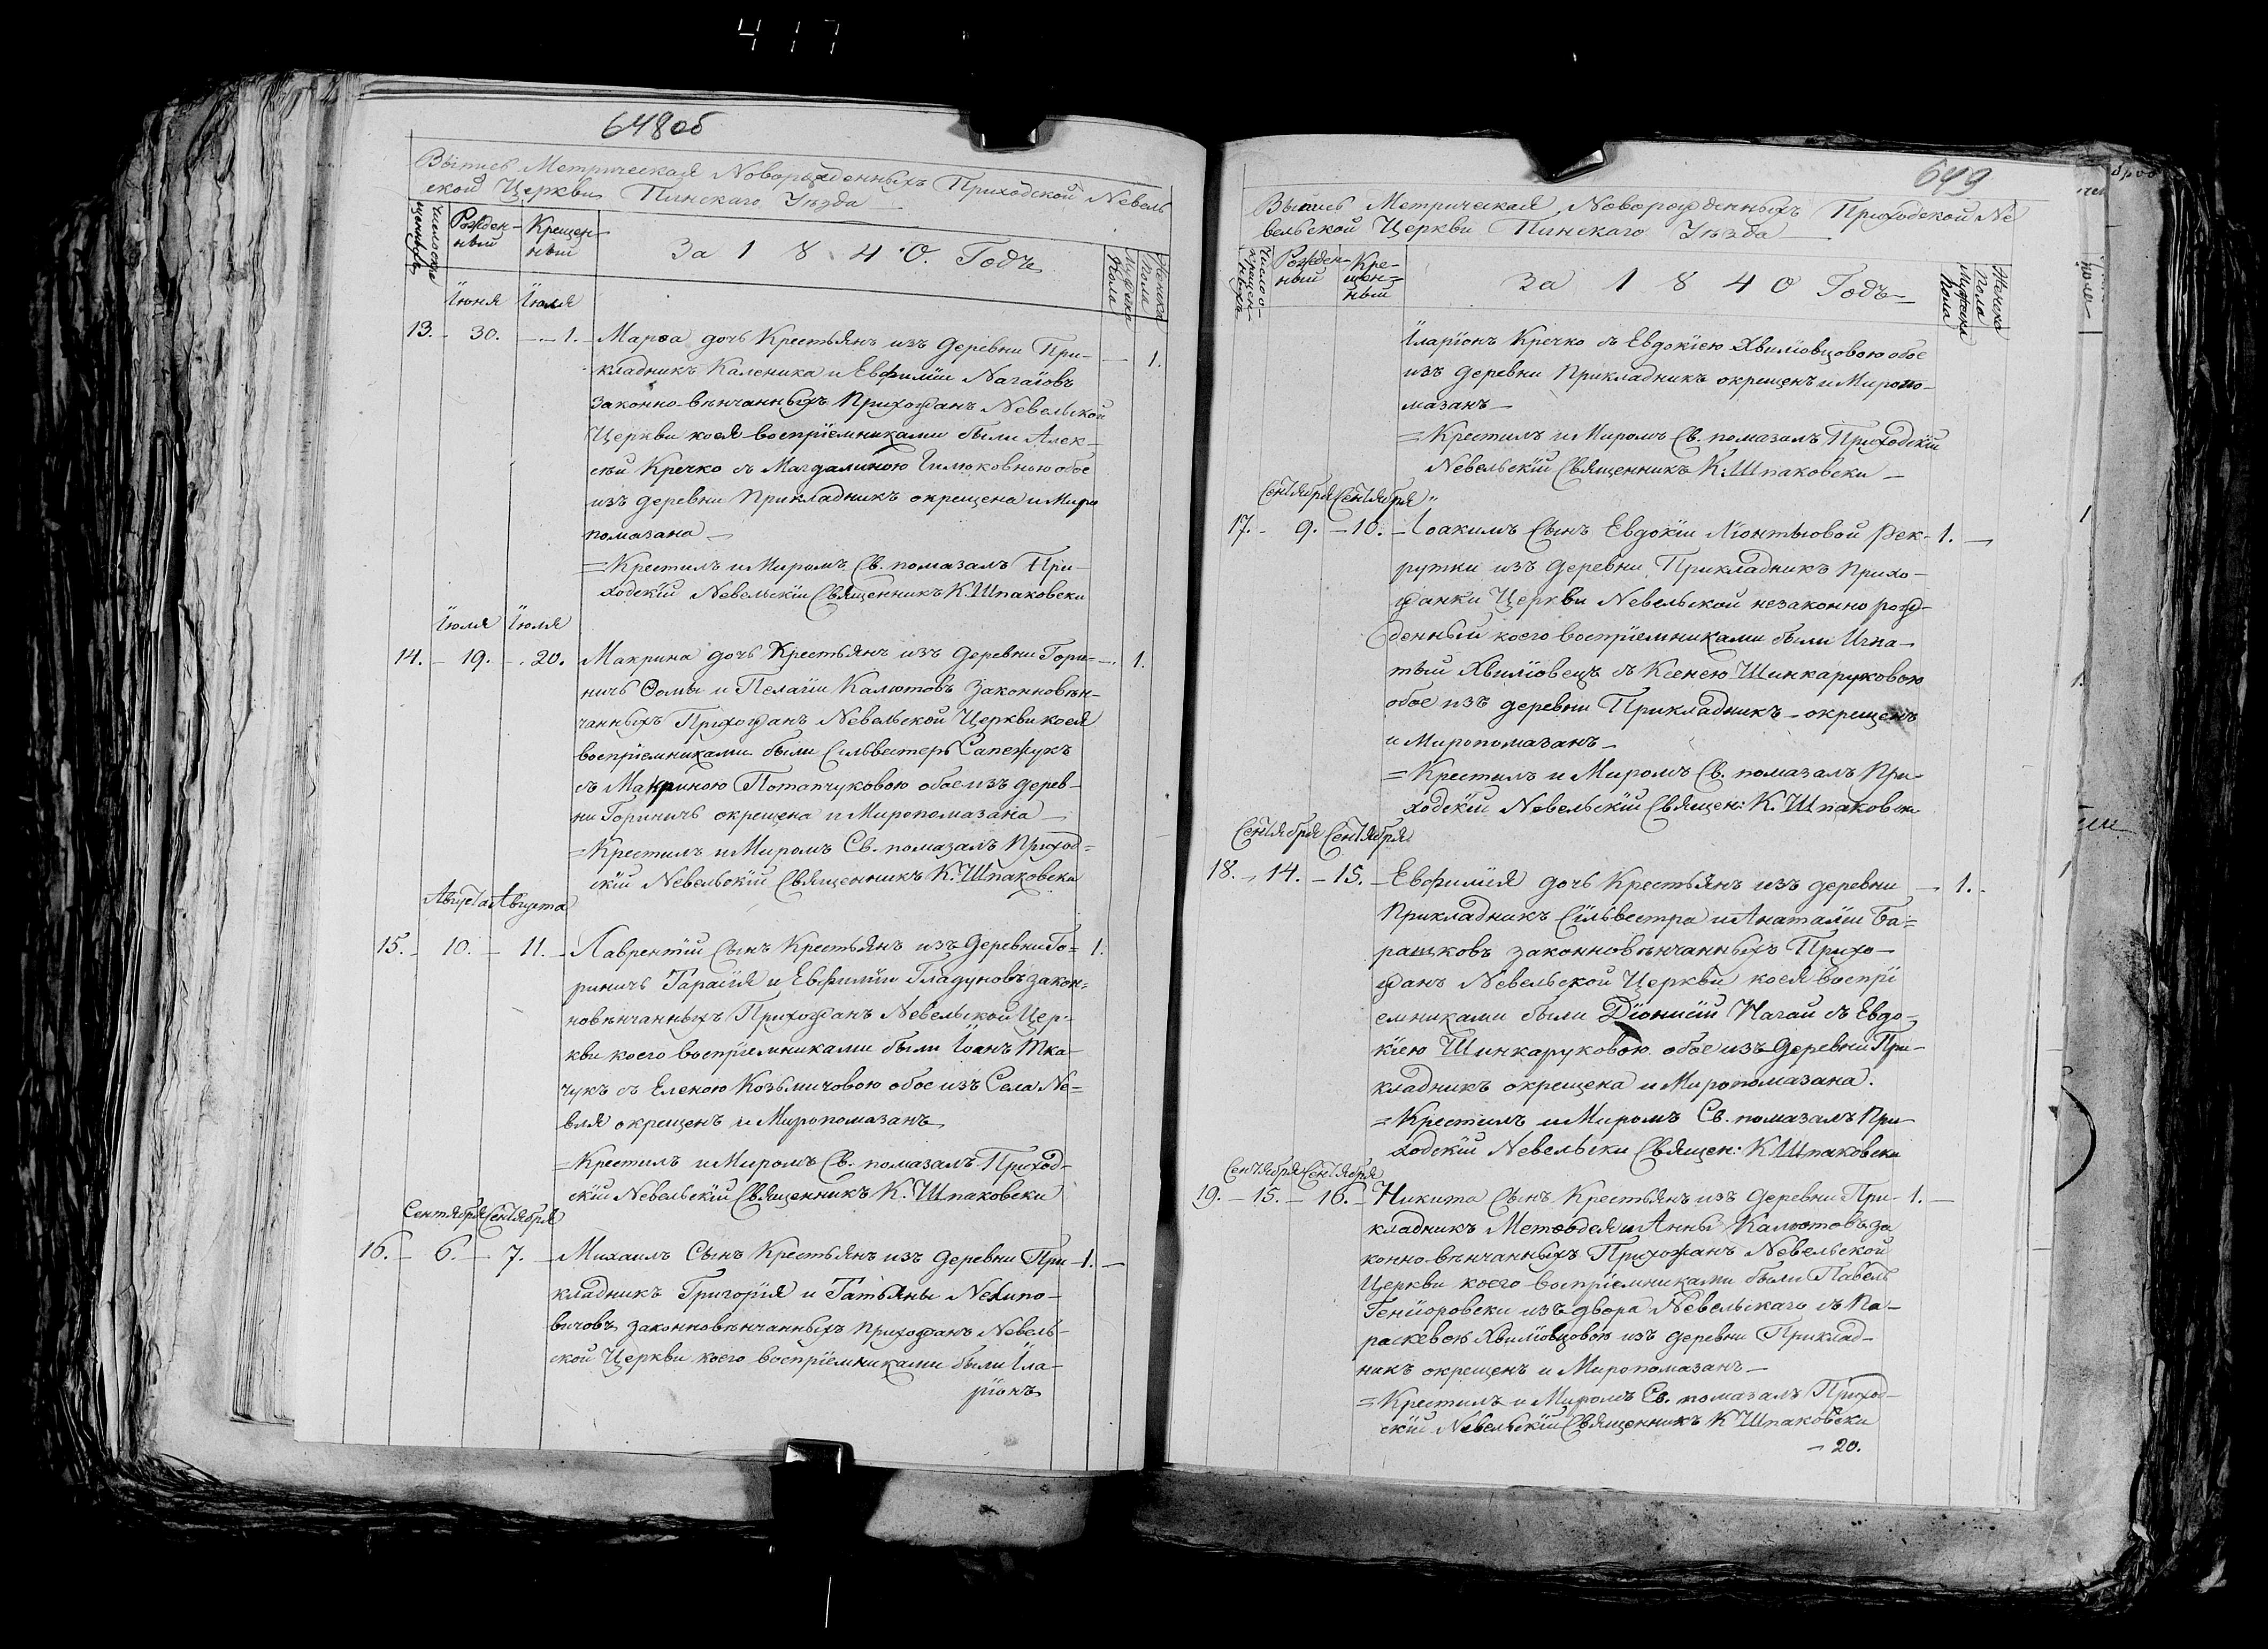 417
648об
Выпись Метрическая Новорожденныхъ Приходской Невель
ской Церкви Пинскаго Уѣзда
Рожден-
ный
Крещен-
ный
За 1840. Годъ
Мужска
Пола
Женска
Пола
Іюня Іюля
13. - 30. - 1. - Марѳа дочь Крестьянъ изъ деревни При- — 1.
кладникъ Каленика и Евфиміи Нагаіовъ
законно-вѣнчанныхъ Прихожанъ Невельской
Церкви коея воспріемниками были Алек-
сѣй Кречко съ Магдалиною обое
изъ деревни Прикладникъ окрещена и Миро
помазана —
= Крестилъ и Миромъ Св. помазалъ При-
ходскій Невельскій Священникъ К. Шпаковски
Іюля Іюля
14. - 19. - 20. Макрина дочь Крестьянъ изъ деревни Гори- — 1.
ничь Ѳомы и Пелагіи Калютовъ законновѣн-
чанныхъ Прихожанъ Невельской Церкви коея
воспріемниками были Сильвестеръ Сапежукъ
съ Макриною Потапчуковою обое изъ дерев-
ни Гориничь окрещена и Миропомазана —
= Крестилъ и Миромъ Св. помазалъ Приход=
скій Невельскій Священникъ К. Шпаковски
Августа Августа
15. - 10. - 11. - Лаврентій Сынъ Крестьянъ изъ деревни Го= 1.
риничь Тарасія и Евфиміи Гладуновъ закон=
новѣнчанныхъ Прихожанъ Невельской Цер-
кви коего воспріемниками были Іоанъ Тка-
чукъ съ Еленою Козьмичовою обое изъ Села Не=
вля окрещенъ и Миропомазанъ
= Крестилъ и Миромъ Св. помазалъ Приход-
скій Невельскій Священникъ К. Шпаковски
Сентября Сентября
16. - 6. - 7. - Михаилъ Сынъ Крестьянъ изъ деревни При - 1. —
кладникъ Григорія и Татьяны Нехипо-
вичовъ законновѣнчанныхъ прихожанъ Невель-
ской Церкви коего воспріемниками были Іла-
ріонъ
649
Выпись Метрическая Новорожденныхъ Приходской Не
вельской Церкви Пинскаго Уѣзда —
Число о-
крещен-
ныхъ
Рожден-
ный
Кре-
щен=
ный
За 1840 Годъ
Мужска
Пола
Женска
Пола
Іларіонъ Кречко съ Евдокіею Хвиліовцовою обое
изъ деревни Прикладникъ окрещенъ и Миропо-
мазанъ —
= Крестилъ и Миромъ Св. помазалъ Приходскій
Невельскій Священникъ К: Шпаковски —
Сентября Сентября
17. - 9. - 10. - Іоакимъ Сынъ Евдокіи Ліонтьовой Рек- 1. —
рутки изъ деревни Прикладникъ Прихо-
жанки Церкви Невельской незаконно рож-
денный коего воспріемниками были Игна-
тый Хвиліовецъ съ Ксенею Шинкаруковою
обое изъ деревни Прикладникъ - окрещенъ
и Миропомазанъ —
= Крестилъ и Миромъ Св. помазалъ При-
ходскій Невельскій Священ: К. Шпаковски
Сентября Сентября
18. - 14. - 15. - Евфимія дочь Крестьянъ изъ деревни — 1. -
Прикладникъ Сильвестра и Анаталіи Ба=
рашковъ законновѣнчанныхъ Прихо-
жанъ Невельской Церкви коея воспрі
емниками были Діонисій Нагай съ Евдо-
кіею Шинкаруковою обое изъ деревни При-
кладникъ окрещена и Миропомазана.
= Крестилъ и Миромъ Св. помазалъ При-
ходскій Невельски Священ: К Шпаковски
Сентября Сентября
19. - 15. - 16. - Никита Сынъ Крестьянъ изъ деревни При- 1. —
кладникъ Меѳодея и Анны Калютовъ за
конно-вѣнчанныхъ Прихожанъ Невельской
Церкви коего воспріемниками были Павелъ
изъ двора Невельскаго съ Па-
раскевою Хвиліовцовою изъ деревни Приклад-
никъ окрещенъ и Миропомазанъ —
= Крестилъ и Миромъ Св. помазалъ Приход-
скій Невельскій Священникъ К Шпаковски
- 20.